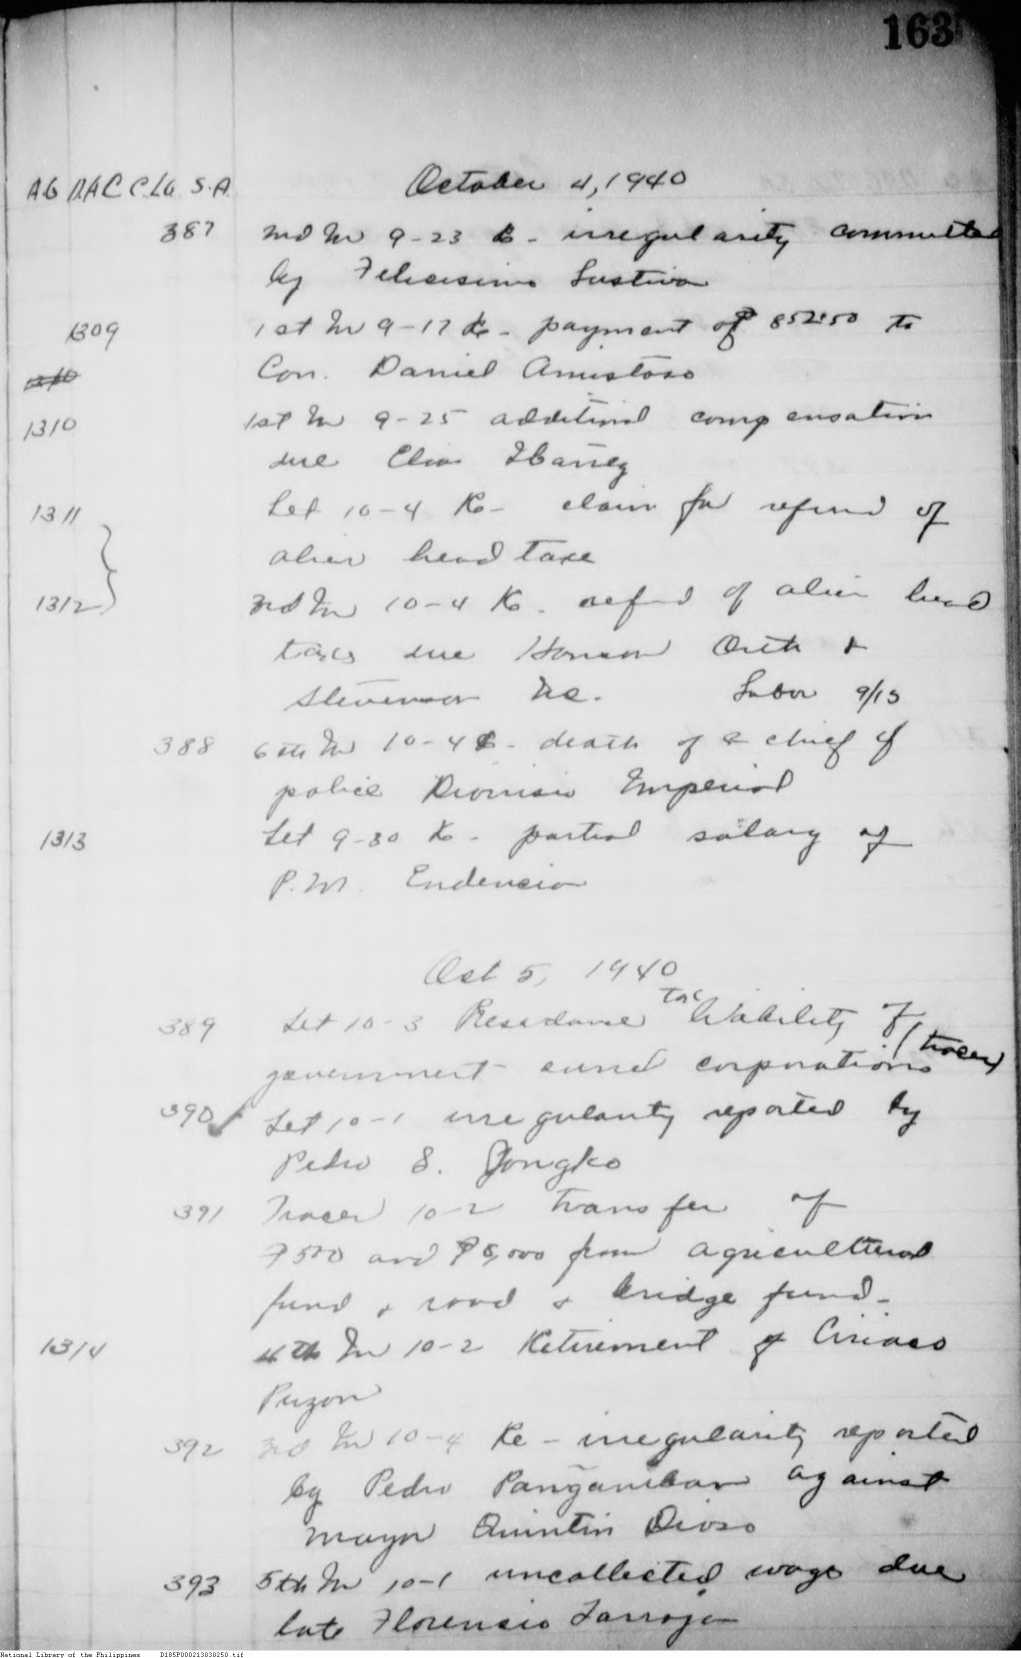 163
AG RAC C.LG. S.A. October 4, 1940
387 2nd In 9-23 Re - irregularity committed
by Felicisimo Lustiva
1309 1st In 9-17 Re - payment of ₱ 852.50 to
Con. Daniel Amistoso
1310 1st In 9-25 additional compensation
due Elias Ibañez
1311 Let 10-4 Re - claim for refund of
alien head taxe
1312 3rd In 10-4 Re - refund of alien head
taxes due Hanson Orth &
Stevenson Inc. Labor 9/13
388 6th In 10-4 Re - death of a chief of
police Dionisio Imperial
1313 Let 9-30 Re - partial salary of
P.M. Endencia
Oct 5, 1940
389 Let 10-3 Residence tax liability of
government owned corporations (tracer)
390 Let 10-1 irregularity reported by
Pedro S. Jongko
391 Tracer 10-2 transfer of
₱500 and ₱5,000 from agricultural
fund & road & bridge fund -
1314 4th In 10-2 Retirement of Ciriaco
Puzon
392 3rd In 10-4 Re - irregularity reported
by Pedro Pañganiban against
Mayor Quintin Dioso
393 5th In 10-1 uncollected wage due
late Florencio
National Library of the Philippines D185P000213838250.tif